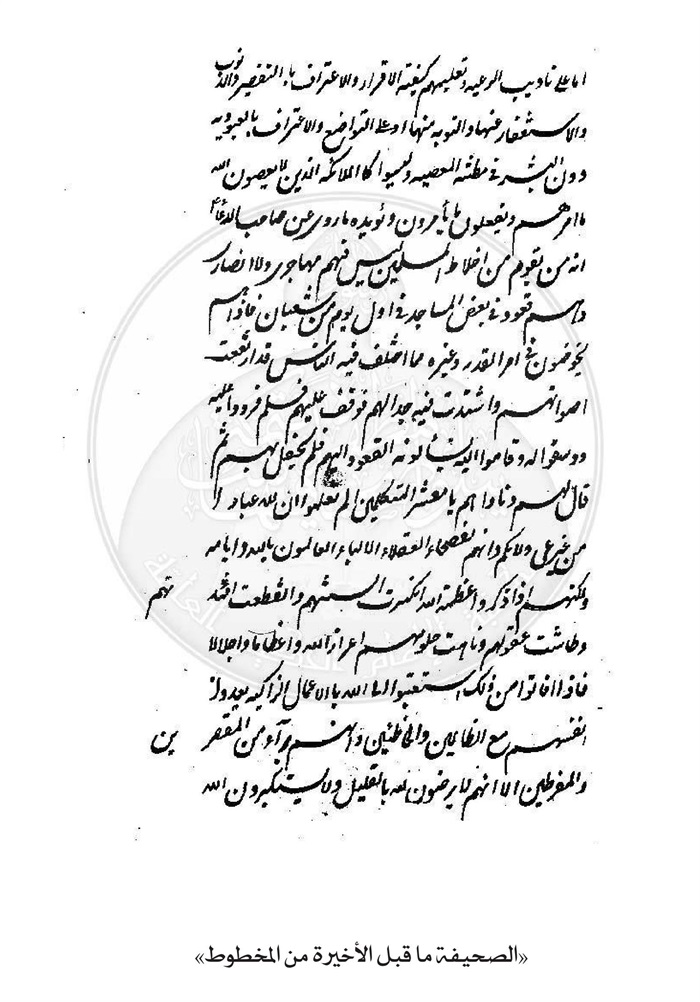 اما على تاديب الرعيه وتعليمهم كيفية الاقرار والاعتراف بالتقصير والذنوب
والاستغفار عنها والتوبه منها او على التواضع والاعتراف بالعبوديه
دون البشر في مظنه المعصيه وليسوا كالملائكه الذين لا يعصون الله
ما امرهم ويفعلون ما يأمرون ويؤيده ما روى عن صاحب
انه من بقوم من اخلاط المسلمين ليس فيهم مهاجرى ولا انصارى
وهم قعود في بعض المساجد في اول يوم من شعبان فاذا هم
يخوضون في امر القدر وغيره مما اختلف فيه الناس قد ارتفعت
اصواتهم واشتدت فيه جدالهم فوقف عليهم فسلم فردوا عليه
ووسعوا له وقاموا اليه يسألونه القعود اليهم فلم يحفل بهم ثم
قال لهم وناداهم يا معشر المتكلمين الم تعلموا ان لله عبادا
من غير عى ولا بكم وانهم لفصحاء العقلاء الالباء العالمون بالله وايامه
ولكنهم اذا ذكروا عظمة الله انكسرت السنتهم وانقطعت افئد تهم
وطاشت عقولهم وتاهت حلومهم اعزازا لله واعظاما واجلالا
فاذا افاقوا من ذلك استبقوا الى الله بالاعمال الزاكيه يعدون
انفسهم مع الظالمين والخاطئين وانهم براء من المقصر ين
والمفرطين الا انهم لا يرضون لله بالقليل ولا يستكثرون لله
«الصحيفة ما قبل الأخيرة من المخطوط»